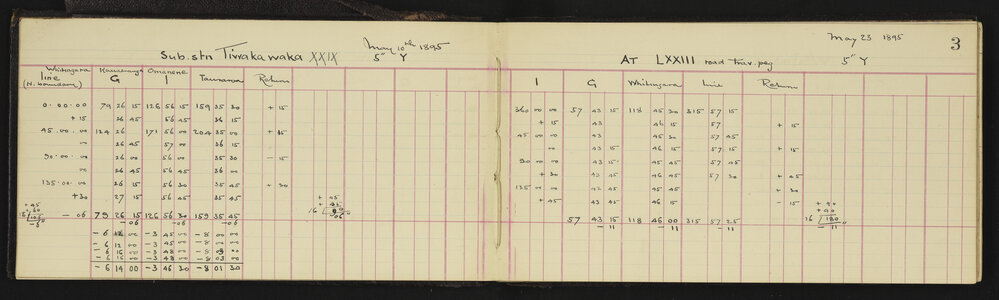 May 10th 1895
Sub. stn Tiwakawaka XXIX 5" Y
Whitingara line (N. boundary) Omanene I Tauranga Return
G
0.00.00 79 26 15 126 56 15 159 35 30 + 15
+ 15 26 45 56 45 36 15
45.00.00 124 26 171 56 00 204 35 00 + 15
00 26 45 57 00 36 15
90.00.00 26 00 56 00 35 30 - 15
00 26 45 56 45 36 00
135.00.00 26 15 56 30 35 45 + 30
+30 27 15 56 45 35 45
+ 45
16 - 06 79 26 15 126 56 30 159 35 45
-06 -06 -06
- 6 12 00 - 3 45 00 - 8 00 00
- 6 14 00 - 3 46 30 - 8 01 30
May 23 1895 3
AT LXXIII road trav. peg 5" Y
I G Whitingara Line Return
360 00 00 57 43 15 118 45 30 315 57 15
+ 15 43 46 15 57 + 15
45 00 00 43 45 30 57 45
00 43 15 46 15 57 15 + 15
90 00 00 43 15 45 45 57 45
+ 30 43 45 46 45 57 30 + 45
135 00 00 42 45 45 45 + 30
+ 45 43 45 46 15 - 15
+ 90
+ 90
57 43 15 118 46 00 315 57 25 16 180
- 11 - 11 - 11 - 11